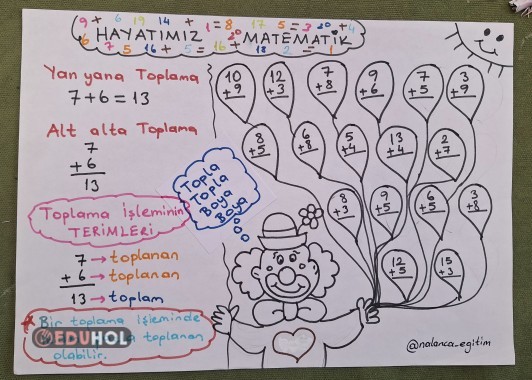 9 + 6 19 14 + 1 = 8 17 5 = 3 20 + 4
HAYATIMIZ MATEMATİK
6 7 5 16 + 5 = 16 + 18 2 = 1
Yan yana Toplama
7+6=13
Alt alta Toplama
7
+ 6
13
Toplama İşleminin
TERİMLERİ
7 → toplanan
+ 6 → toplanan
13 → toplam
Bir toplama işleminde
toplanan
olabilir.
EDUHOL
Topla
Topla
Boya
Boya
10 12 7 9 7 3
+9 +3 +8 +6 +5 +9
8 6 5 13 2
+5 +8 +4 +4 +7
8 9 6 3
+3 +5 +5 +8
12 15
+5 +3
@nalanca_egitim